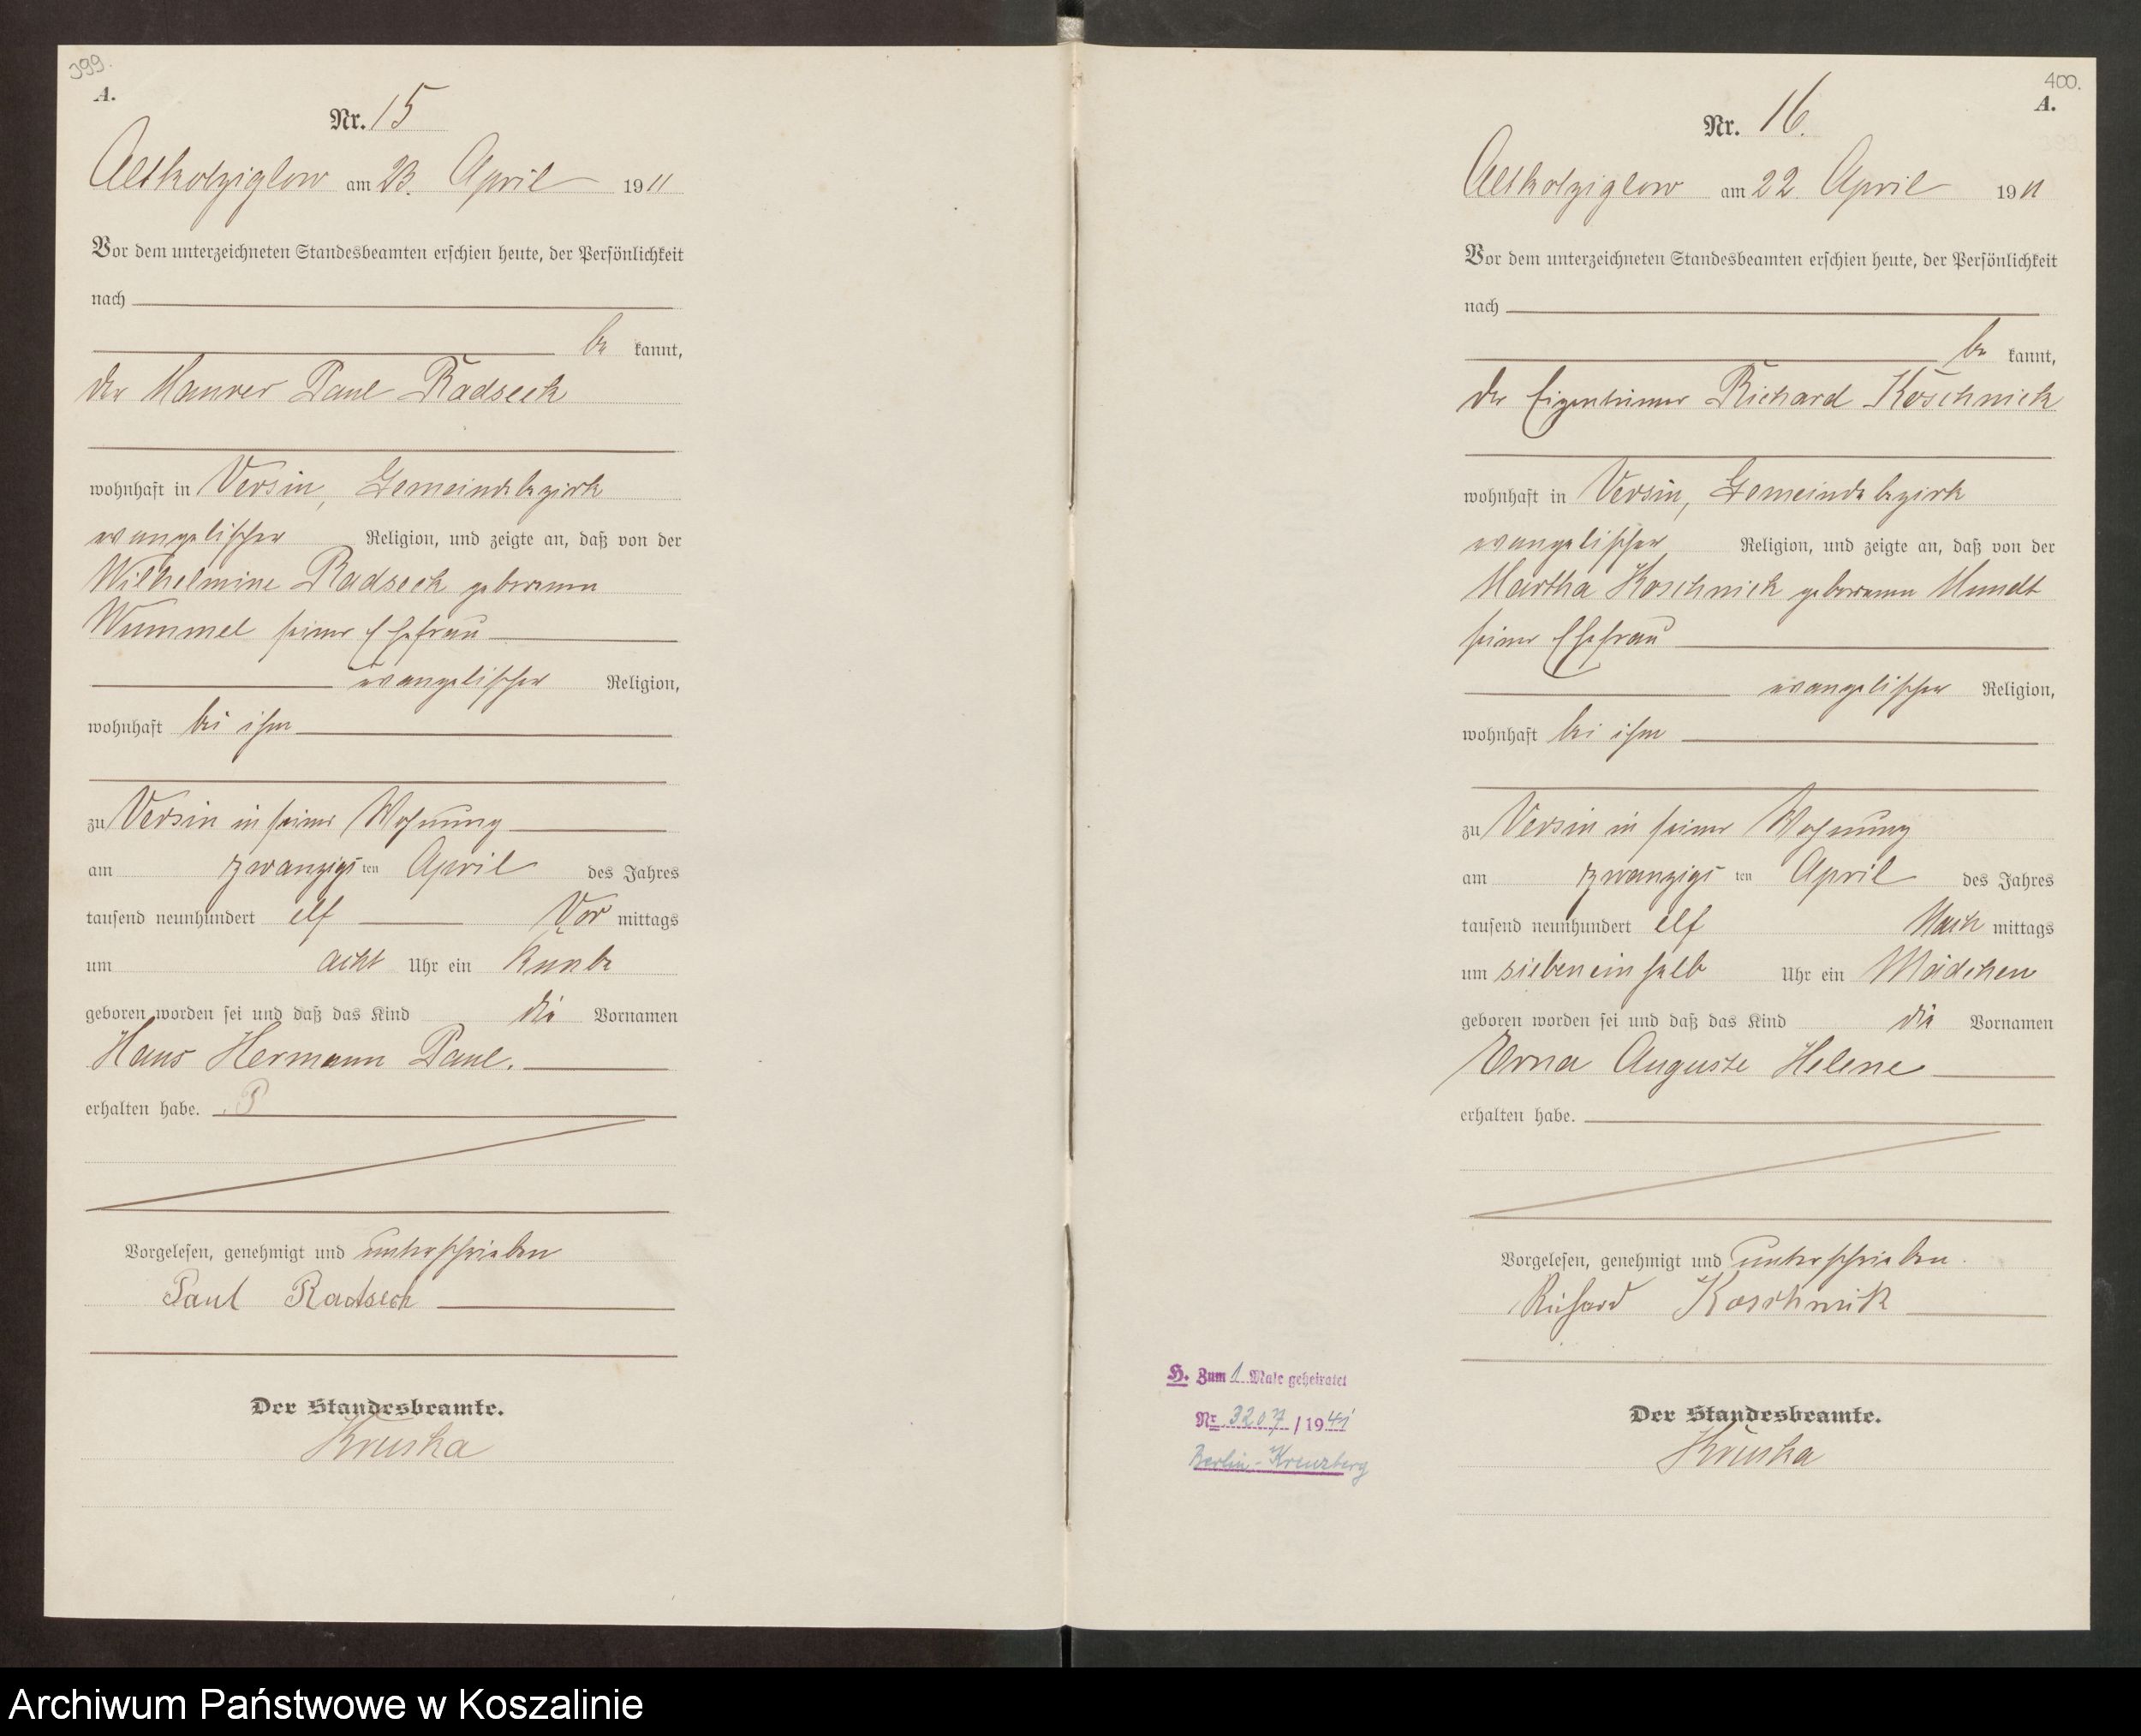 399.
A.
Nr. 15
Altkolziglow am 23. April 1911
Vor dem unterzeichneten Standesbeamten erschien heute, der Persönlichkeit
nach
be kannt,
der Maurer Paul Radseck
wohnhaft in Versin, Gemeindebezirk
evangelischer Religion, und zeigte an, daß von der
Wilhelmine Radseck geborenen
Wummel seiner Ehefrau
evangelischer Religion,
wohnhaft bei ihm
zu Versin in seiner Wohnung
am zwanzigsten April des Jahres
tausend neunhundert elf Vor mittags
um acht Uhr ein Knabe
geboren worden sei und daß das Kind die Vornamen
Hans Hermann Paul.
erhalten habe.
Vorgelesen, genehmigt und unterschrieben
Paul Radseck
Der Standesbeamte.
Kruska
400.
A.
Nr. 16.
Altkolziglow am 22. April 1911
Vor dem unterzeichneten Standesbeamten erschien heute, der Persönlichkeit
nach
be kannt,
der Eigentümer Richard Koschnick
wohnhaft in Versin, Gemeindebezirk
evangelischer Religion, und zeigte an, daß von der
Martha Koschnick geborenen Mundt
seiner Ehefrau
evangelischer Religion,
wohnhaft bei ihm
zu Versin in seiner Wohnung
am zwanzigsten April des Jahres
tausend neunhundert elf Nach mittags
um siebeneinhalb Uhr ein Mädchen
geboren worden sei und daß das Kind die Vornamen
Erna Auguste Helene
erhalten habe.
Vorgelesen, genehmigt und unterschrieben.
Richard Koschnick
Der Standesbeamte.
Kruska
H. Zum 1 Male geheiratet
Nr. 3207 / 1941
Berlin-Kreuzberg
Archiwum Państwowe w Koszalinie